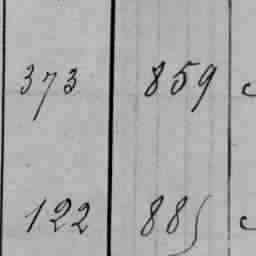 373 859
122 885